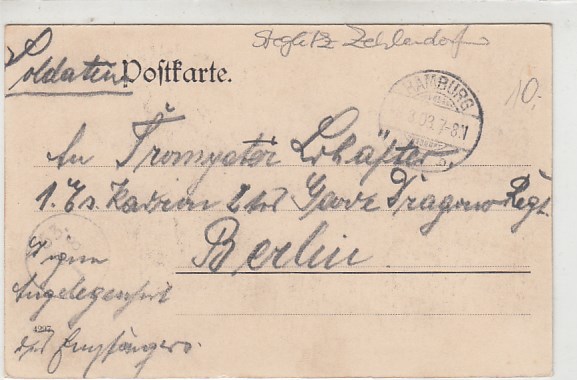 Steglitz Zehlendorf
Soldaten Postkarte.
HAMBURG
.03. 7-8N
10.-
An Trompeter
1. Es 2 tes Garde Dragoner Regt.
Berlin
Eigene
Angelegenheit
des Empfängers.